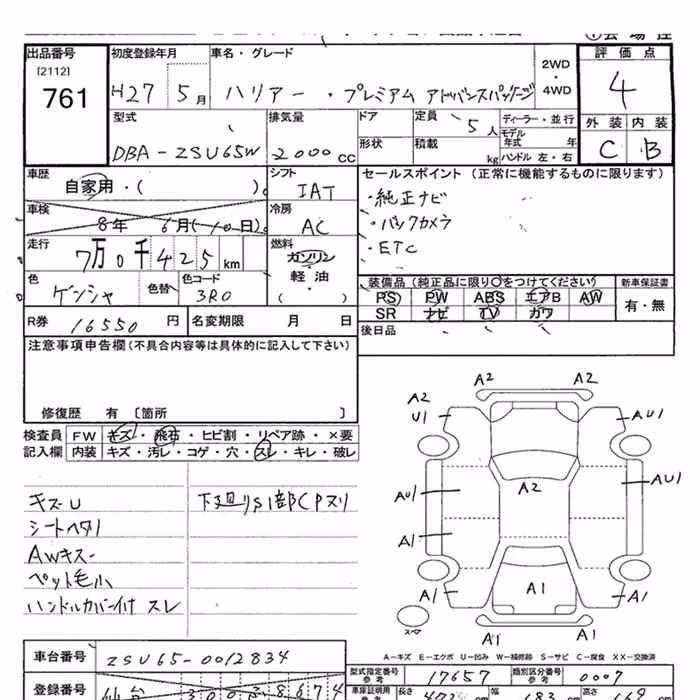 出品番号 初度登録年月 車名・グレード 2WD・4WD 評価点
[2112]
761 H27 5月 ハリアー・プレミアム アドバンスパッケージ 4
型式 排気量 ドア 定員 5人 ディーラー・並行 外装 内装
モデル年式 年式
DBA-ZSU65W 2000CC 形状 積載 kg ハンドル 左・右 C B
車歴 自家用・( )。 シフト IAT セールスポイント (正常に機能するものに限ります)
車検 8年 6月(10日) 冷房 AC ・純正ナビ
・バックカメラ
走行 7万0千425km 燃料 ガソリン・軽油・( ) ・ETC
色 ゲンシャ 色替 色コード 3R0 装備品(純正品に限り○をつけてください) 新車保証書
PS PW ABS エアB AW 有・無
SR ナビ TV カワ
R券 16550円 名変期限 月 日 後日品
注意事項申告欄(不具合内容等は具体的に記入して下さい)
修復歴 有〔箇所 〕
検査員 FW キズ・飛石・ヒビ割・リペア跡・×要
記入欄 内装 キズ・汚レ・コゲ・穴・スレ・キレ・破レ
キズU 下廻りS1部CPヌリ
シートヘタリ
AWキズ
ペット毛小
ハンドルカバー付 スレ
A2 A2
A2
U1 AU1
A2
AU1 AU1
A1
A1 A1 A1
A1 A1
A-キズ E-エクボ U-凹み W-補修跡 S-サビ C-腐食 XX-交換済
車台番号 ZSU65-0012834
型式指定番号 参考 17657 類別区分番号 参考 0007
登録番号 仙台 300 8674 車庫証明用 参考 長さ 472 幅 183 高さ 169